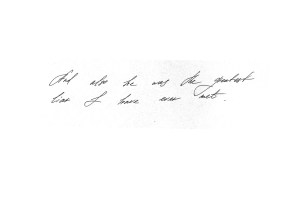 And also he was the greatest
liar I have ever met.